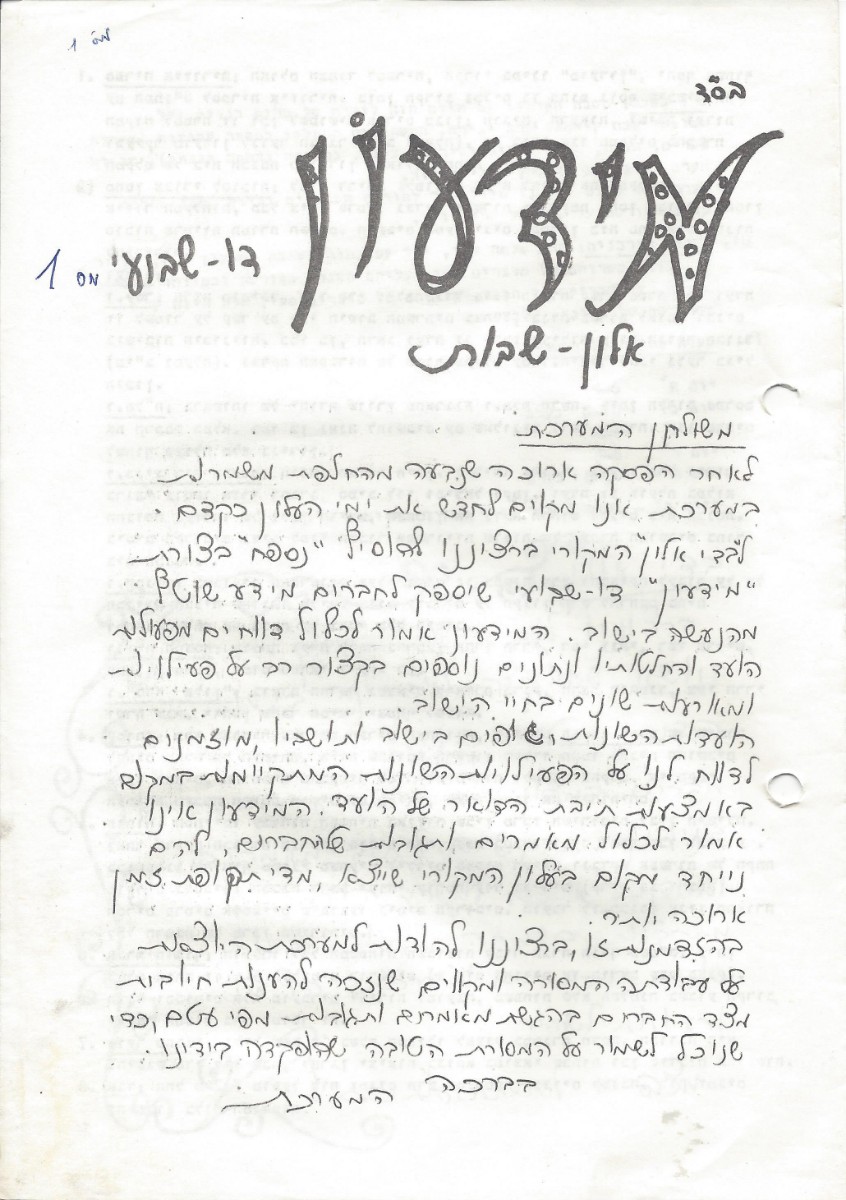 מס 1
בס"ד
מידעון
דו-שבועי מס 1
אלון-שבות
משולחן המערכת
לאחר הפסקה ארוכה שנבעה מהחלפת משמרות
במערכת אנו מקוים לחדש את ימי העלון כקדם.
לגבי אלון המקורי ברצוננו להוסיף "נספח" בצורת
"מידעון" דו-שבועי שיספק לחברים מידע שוטף
מהנעשה בישוב. המידעון אמור לכלול דווחים מפעולות
הועד והחלטותיו ונתונים נוספים בקצור רב על פעילויות
ומאורעות שונים בחיי הישוב.
הועדות השונות, גופים בישוב ותושביו, מוזמנים
לדווח לנו על הפעילויות השונות המתקיימות במקום
באמצעות תיבת הדואר של הועד. המידעון אינו
אמור לכלול מאמרים ותגובות של חברים, להם
נייחד מקום בעלון המקורי שייצא, מדי תקופת זמן
ארוכה יותר.
בהזדמנות זו, ברצוננו להודות למערכת היוצאת
על עבודתה המסורה ומקווים שנזכה להענות חיובית
מצד החברים בהגשת מאמרים ותגובות מפי עטם, כדי
שנוכל לשמור על המסורת הטובה שהופקדה בידינו.
בברכה
המערכת